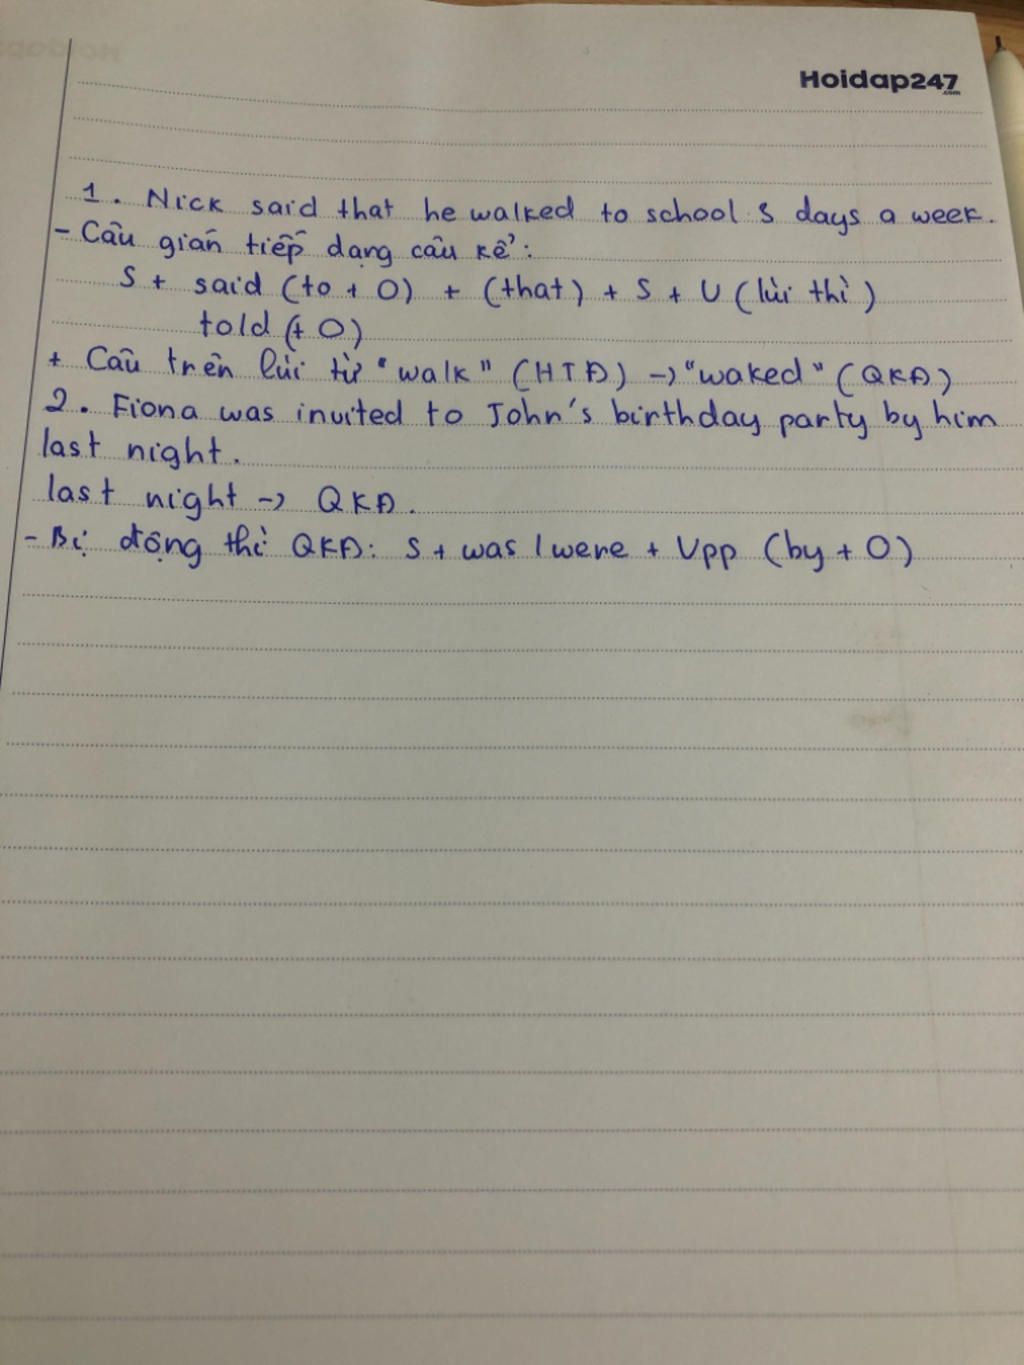 Hoidap247
.com
1. Nick said that he walked to school 3 days a week.
- Câu gián tiếp dạng câu kể:
S + said (to + O) + (that) + S + V (lùi thì)
told (+ O)
+ Câu trên lùi từ "walk" (HTĐ) -> "waked" (QKĐ)
2. Fiona was invited to John's birthday party by him
last night.
last night -> QKĐ.
- Bị động thì QKĐ: S + was / were + Vpp (by + O)